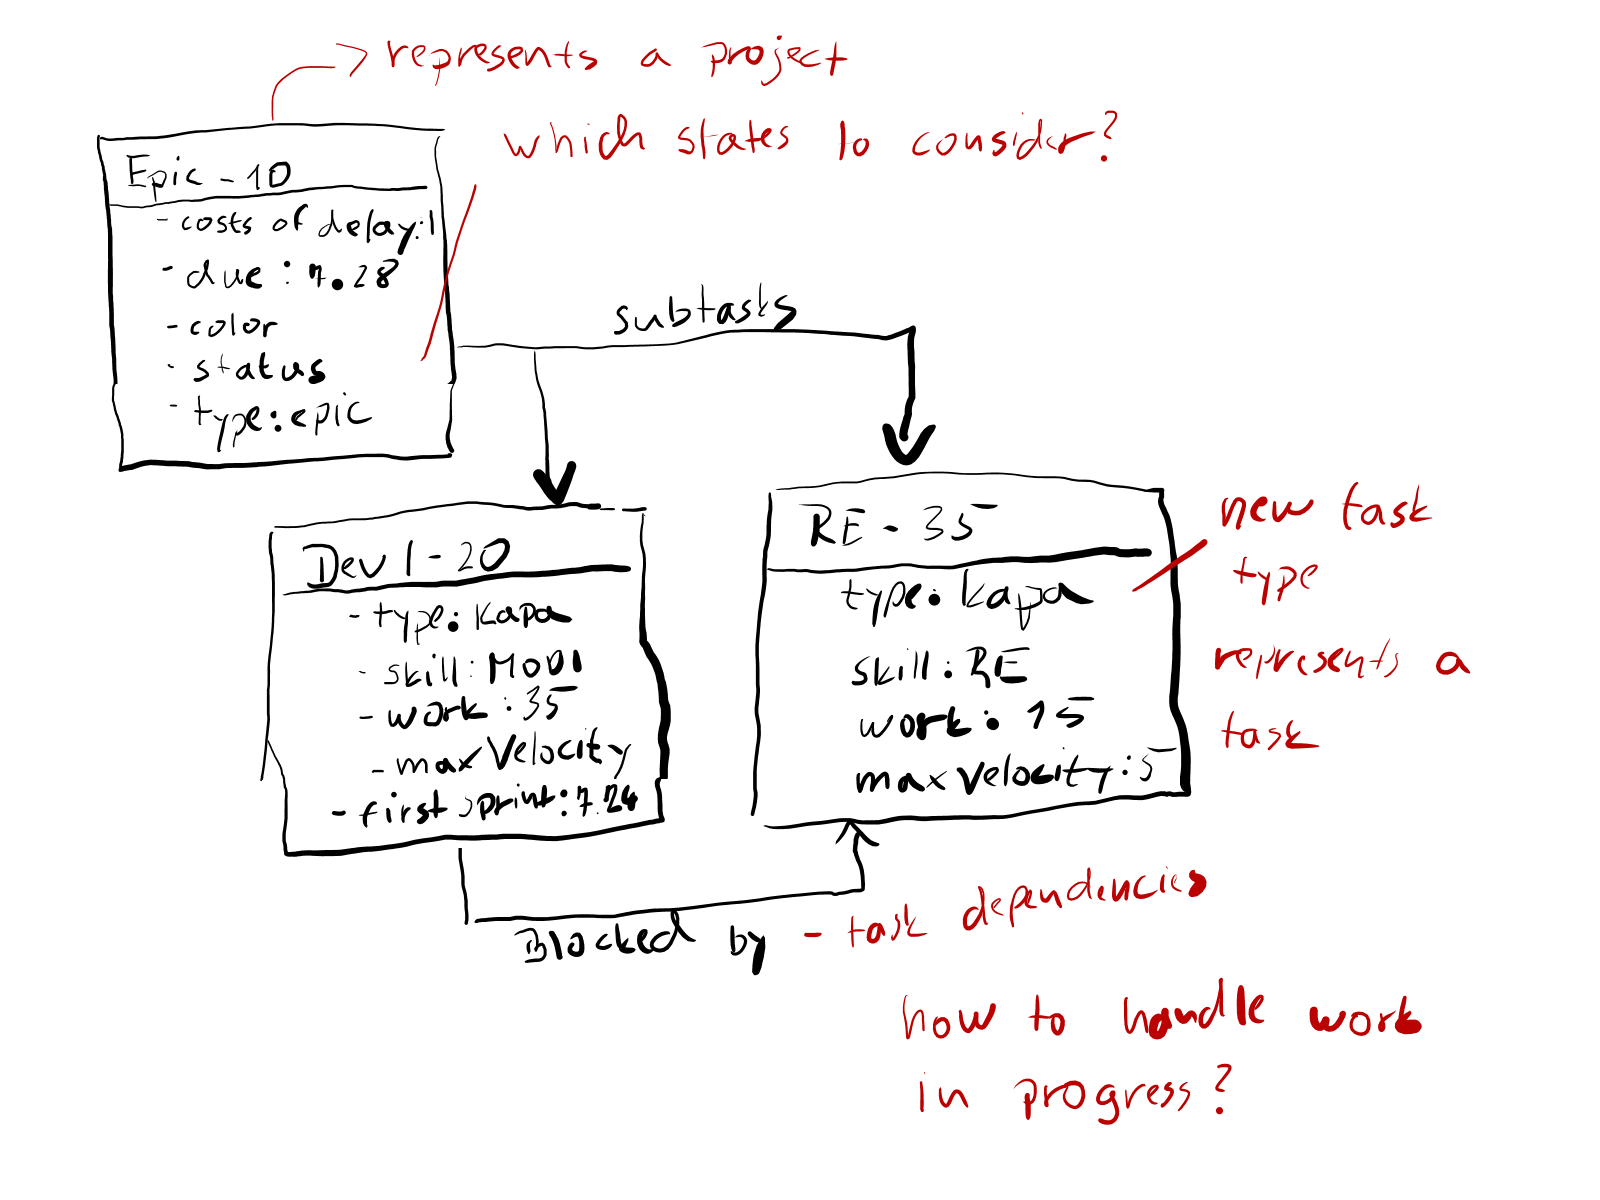 represents a project
which states to consider?
Epic - 10
- costs of delay:1
- due: 7.28
- color
- status
- type: epic
subtasks
Dev1 - 20
- type: Kapa
- skill: MOD1
- work: 35
- maxVelocity
- first sprint: 7.24
RE - 35
type: Kapa
skill: RE
work: 15
maxVelocity: 5
new task
type
represents a
task
Blocked by - task dependencies
how to handle work
in progress?